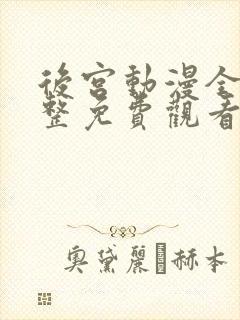 後宮動漫全
整免費觀看
奧黛麗赫本